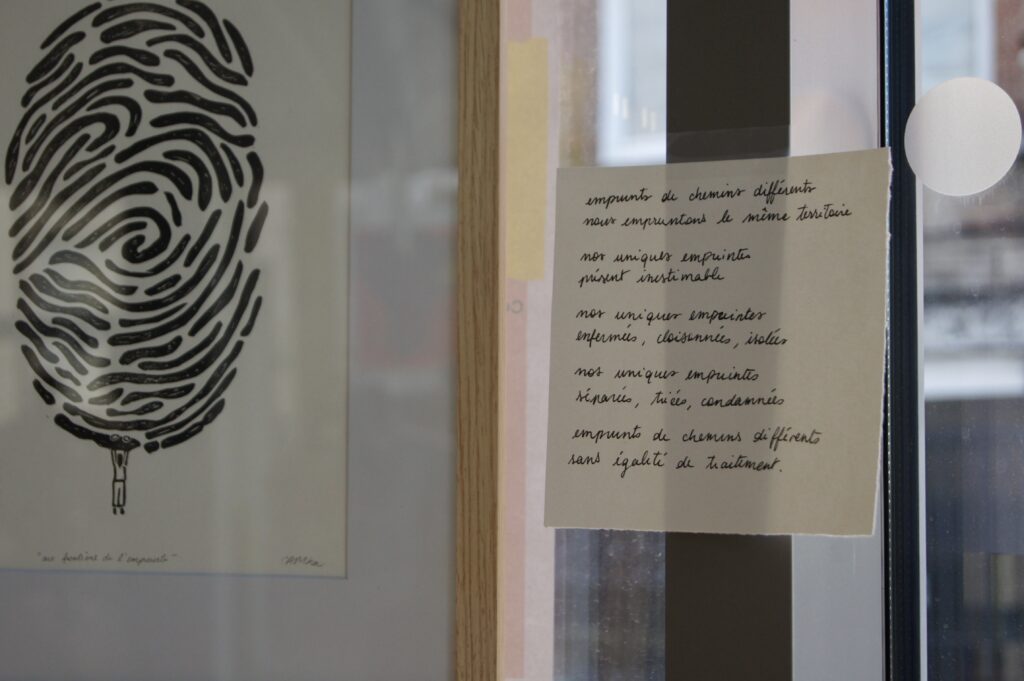 emprunts de chemins différents
nous empruntons le même territoire
nos uniques empreintes
présent inestimable
nos uniques empreintes
enfermées, cloisonnées, isolées
nos uniques empreintes
séparées, triées, condamnées
emprunts de chemins différents
sans égalité de traitement.
de l'empreinte"